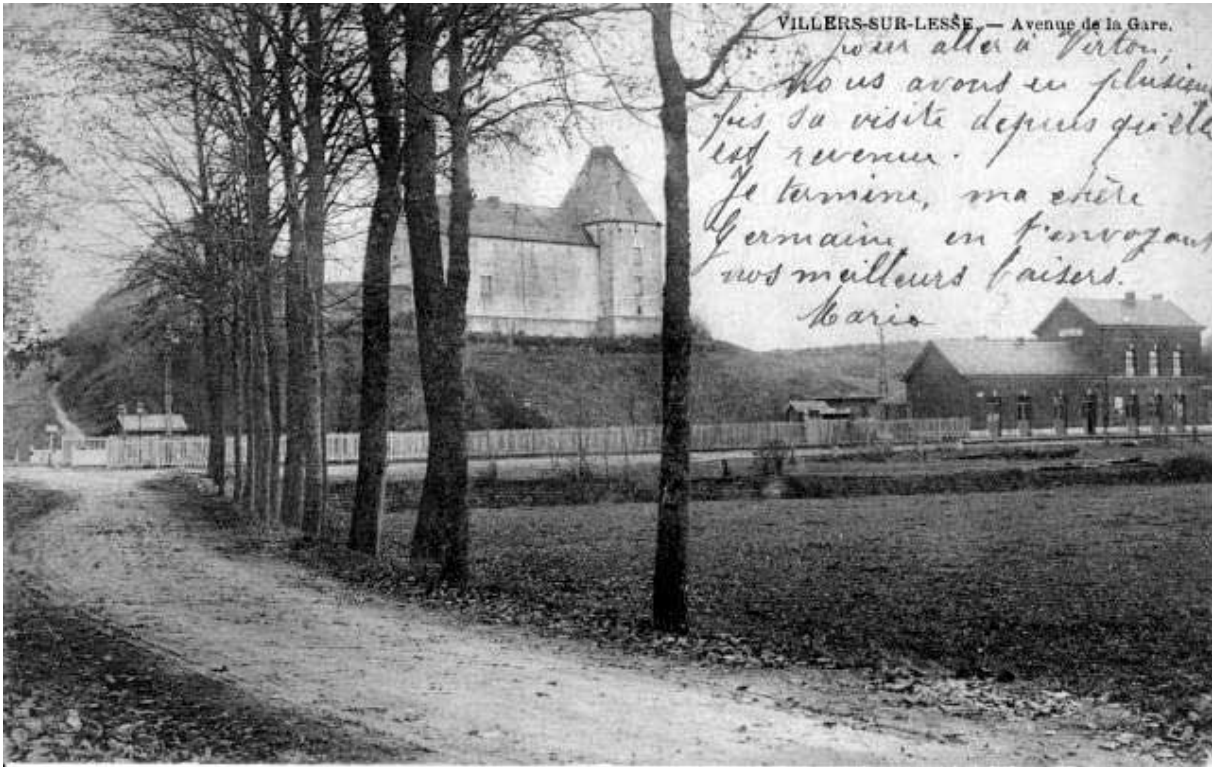 VILLERS-SUR-LESSE. — Avenue de la Gare.
pour aller à Virton,
Nous avons eu plusieurs
fois sa visite depuis qu'elle
est revenue.
Je termine, ma chère
Germaine, en t'envoyant
nos meilleurs baisers.
Maria